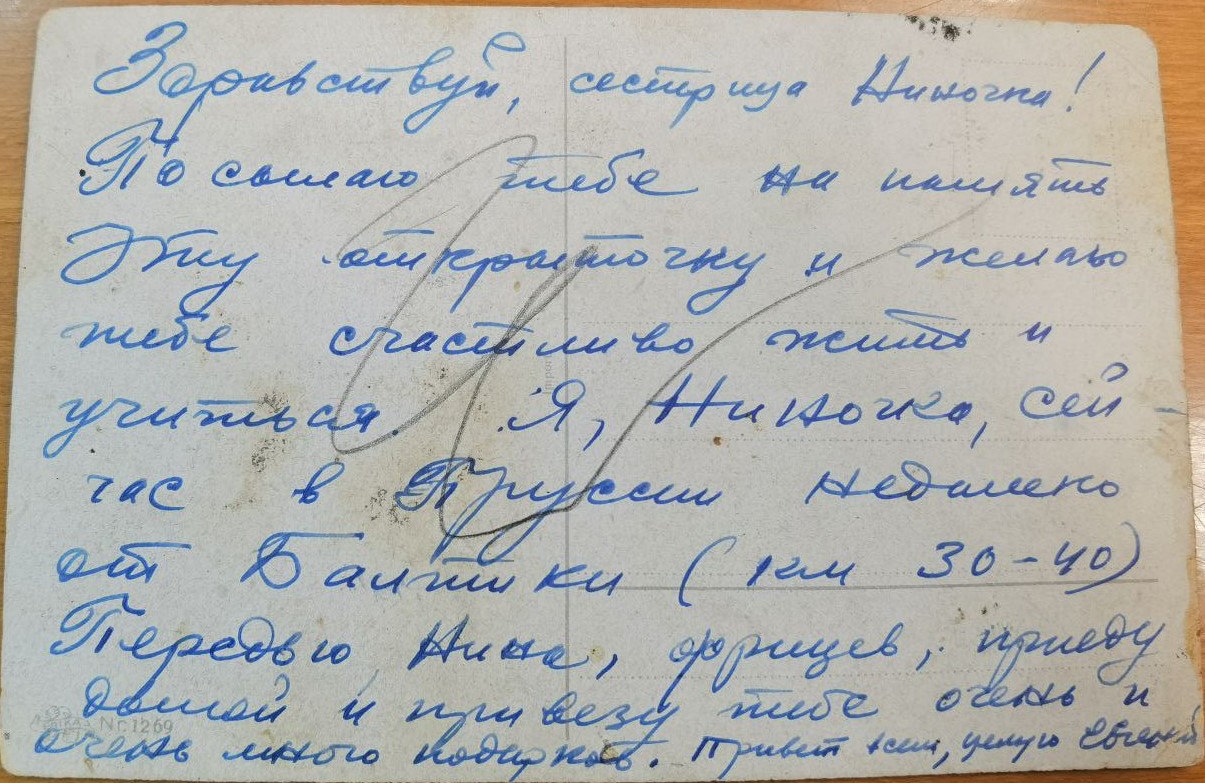 Здравствуй, сестрица Ниночка!
Посылаю тебе на память
Эту открыточку и желаю
тебе счастливо жить и
учиться. Я, Ниночка, сей-
час в Пруссии недалеко
от Балтики (км 30-40)
Передью, Нина, фрицев, приеду
домой и привезу тебе очень и
очень много подарков. Привет всем, целую Евгений
Nr. 1269